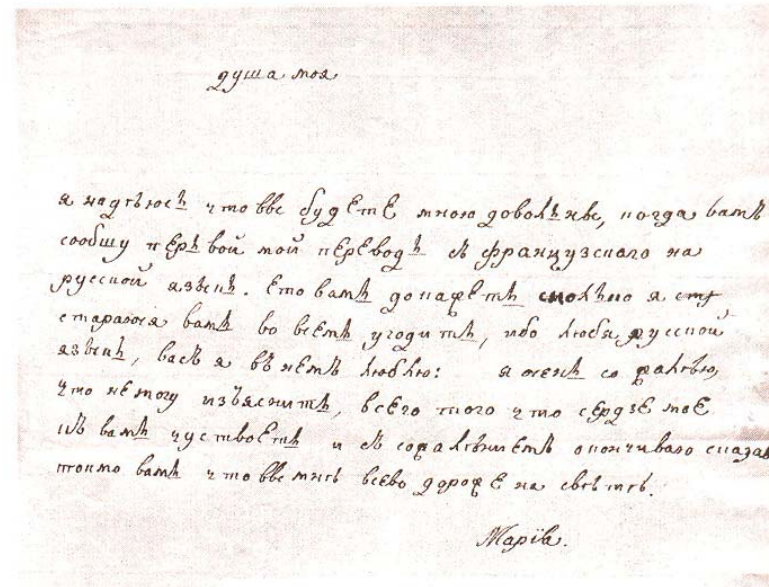 душа моя
я надѣюсь что вве будете мною довольнве, когда вамъ
сообшу перьвой мой переводъ съ французскаго на
русской язвикъ. Ето вамъ докажеть сколько я
стараюся вамъ во всемъ угодить, ибо любя русской
язвикъ, васъ я въ немъ люблю: я очень сожалѣю,
что немогу изъяснить, всего того что сердзе мое
къ вамъ чуствоеть и съ сожалѣниемъ окончиваю
токмо вамъ что вве мнѣ всево дороже на свѣтѣ.
Марїа.